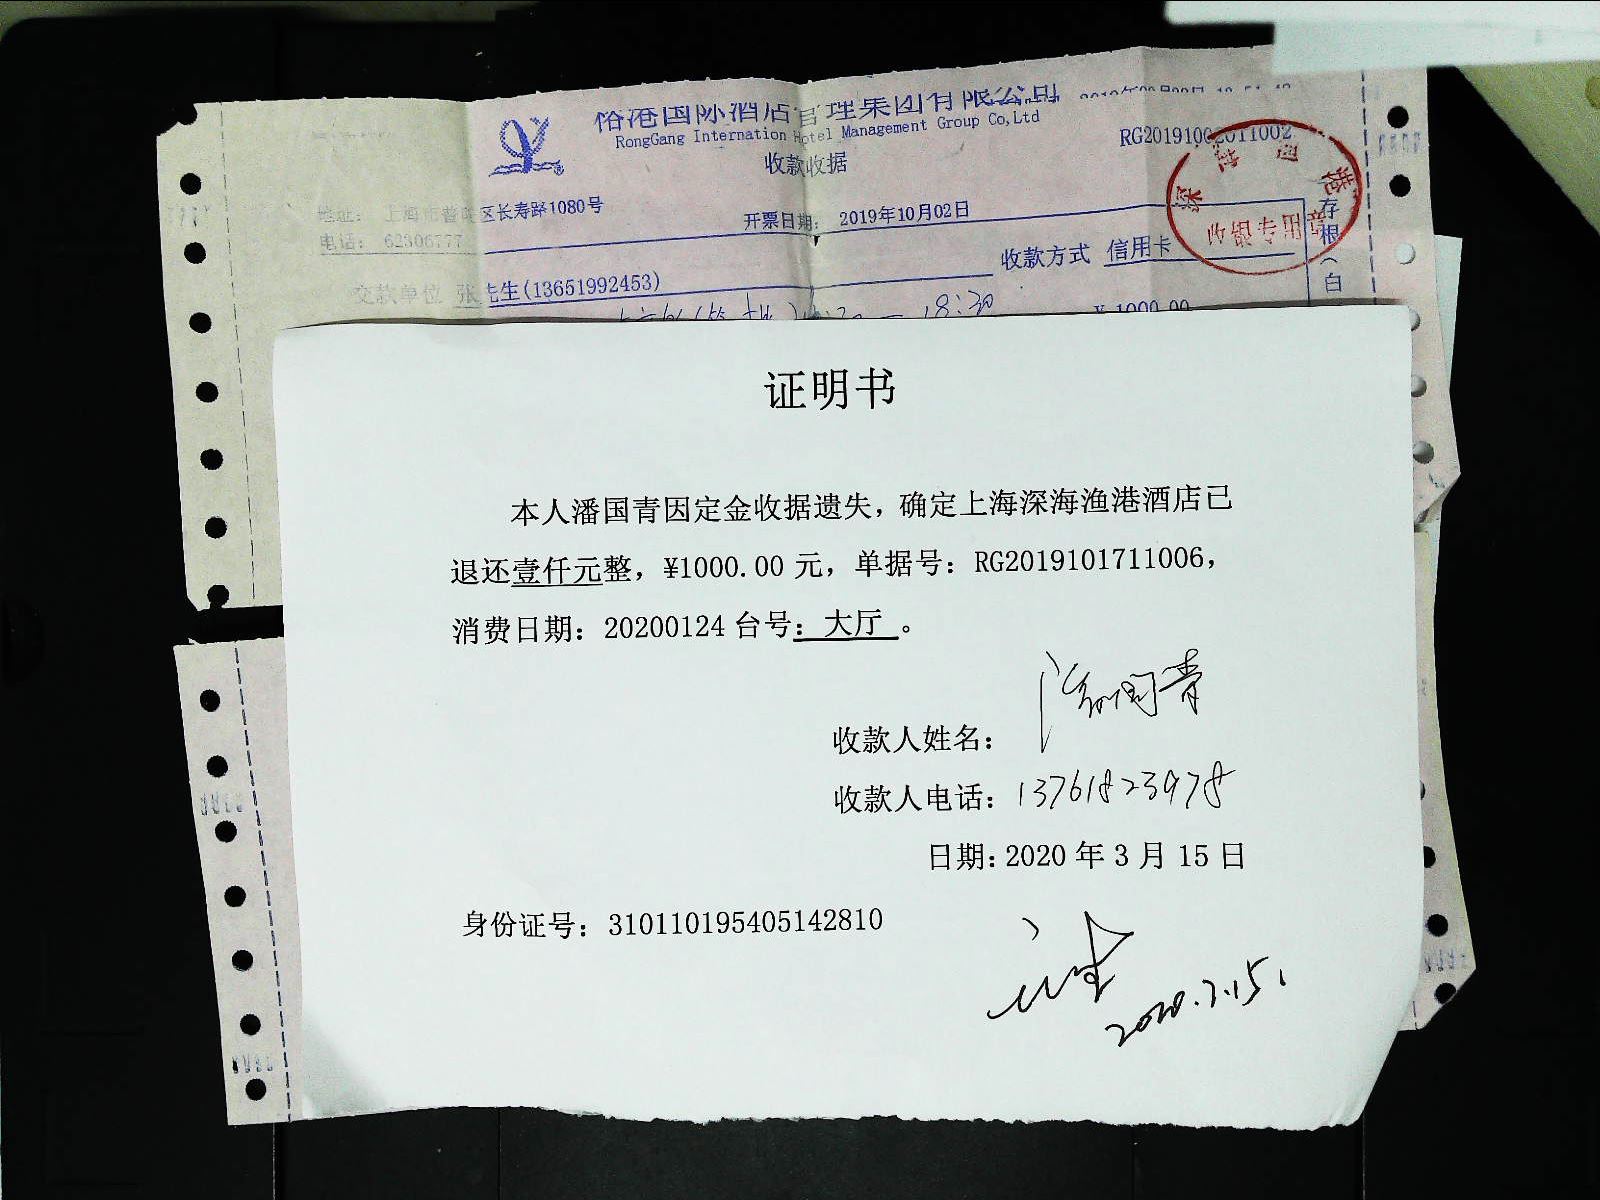 裕港国际酒店管理集团有限公司
RongGang Internation Hotel Management Group Co,Ltd
RG20191002011002
收款收据
地址: 上海市普陀区长寿路1080号
开票日期: 2019年10月02日
电话: 62306777
收款方式 信用卡
交款单位 张先生(13651992453)
18:30
¥ 1000.00
存根(白
收银专用章
证明书
本人潘国青因定金收据遗失，确定上海深海渔港酒店已
退还壹仟元整，¥1000.00 元，单据号：RG2019101711006，
消费日期：20200124 台号：大厅 。
收款人姓名： 潘国青
收款人电话：13761823978
日期：2020 年 3 月 15 日
身份证号：310110195405142810